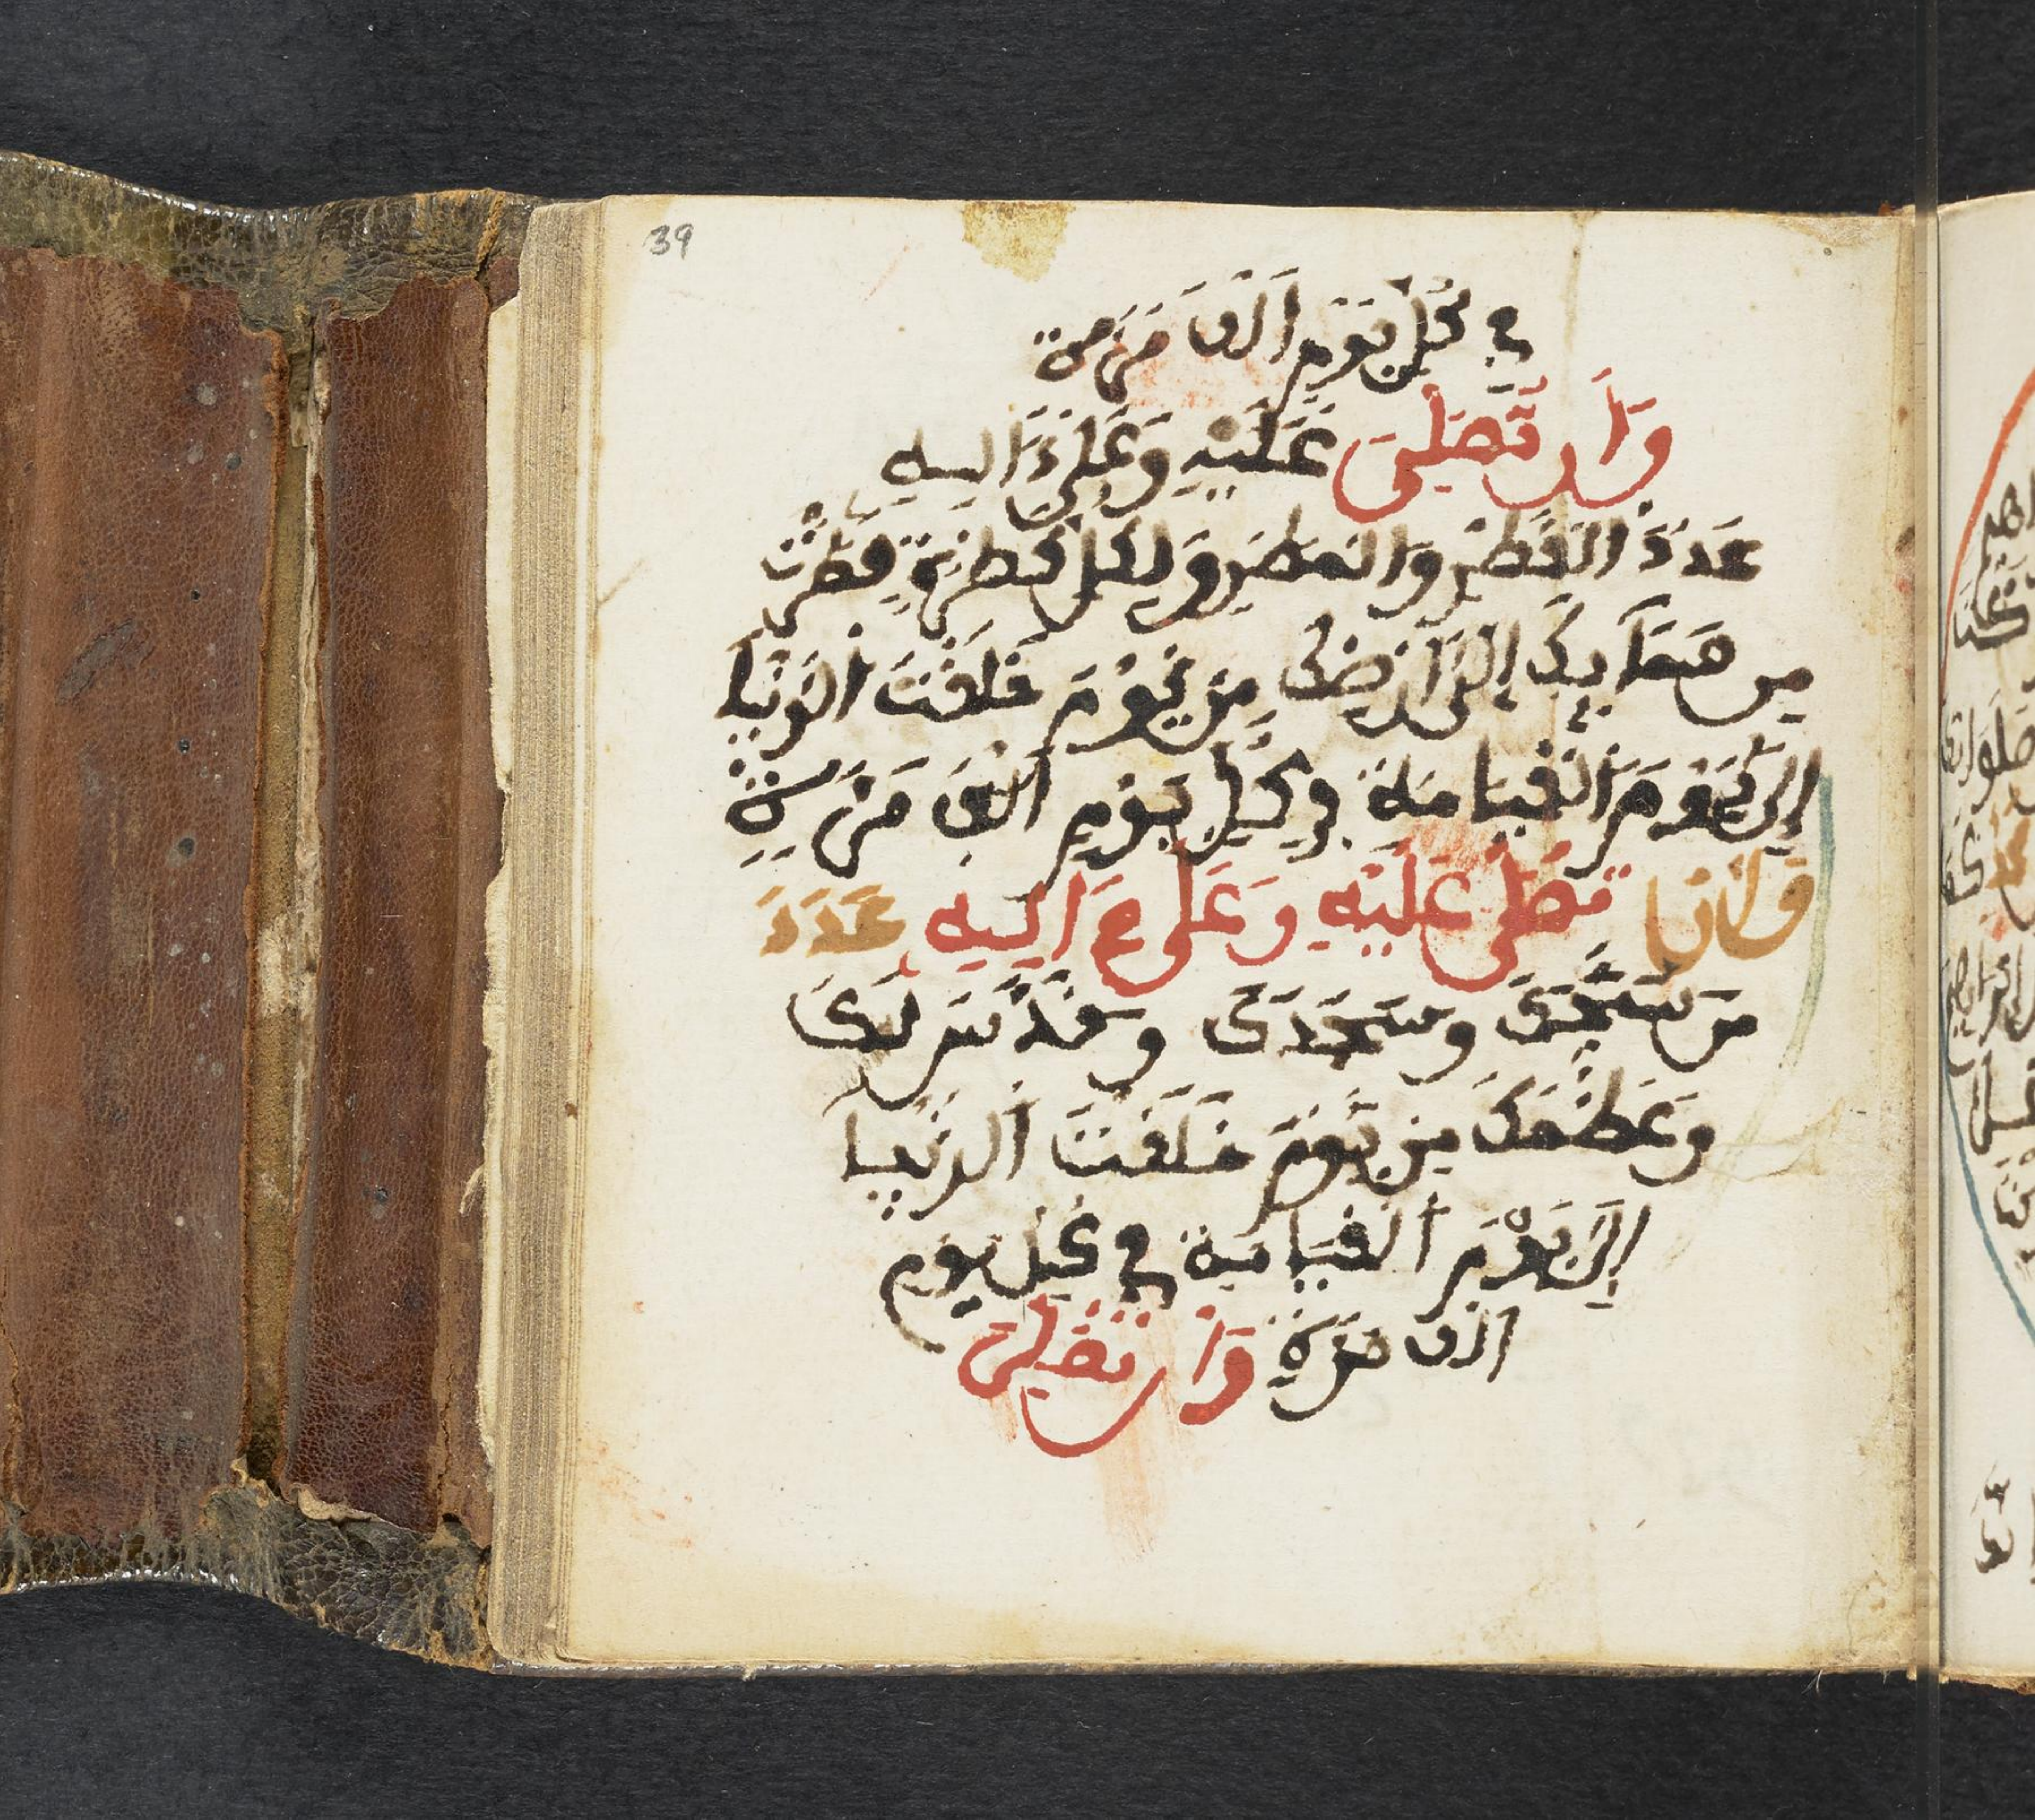 39
في كُلِّ يَوْمٍ أَلْفَ مَرَّة
وَأَن تُصَلِّيَ عَلَيْهِ وَعَلَىٰ ءَالِهِ
عَدَدَ الْقَطْرِ وَالْمَطَرِ وَلِكُلِّ قَطْرَةٍ قَطَرَتْ
مِن سَمَآئِكَ إِلَىٰ أَرْضِكَ مِن يَوْمَ خَلَقْتَ الدُّنْيَا
إِلَىٰ يَوْمِ الْقِيَامَةِ فِي كُلِّ يَوْمٍ أَلْفَ مَرَّةٍ
وَأَن تُصَلِّيَ عَلَيْهِ وَعَلَىٰ ءَالِهِ عَدَدَ
مَن سَبَّحَكَ وَسَجَدَ لَكَ وَقَدَّسَ لَكَ
وَعَظَّمَكَ مِن يَوْمَ خَلَقْتَ الدُّنْيَا
إِلَىٰ يَوْمِ الْقِيَامَةِ فِي كُلِّ يَوْمٍ
أَلْفَ مَرَّةٍ وَأَن تُصَلِّيَ